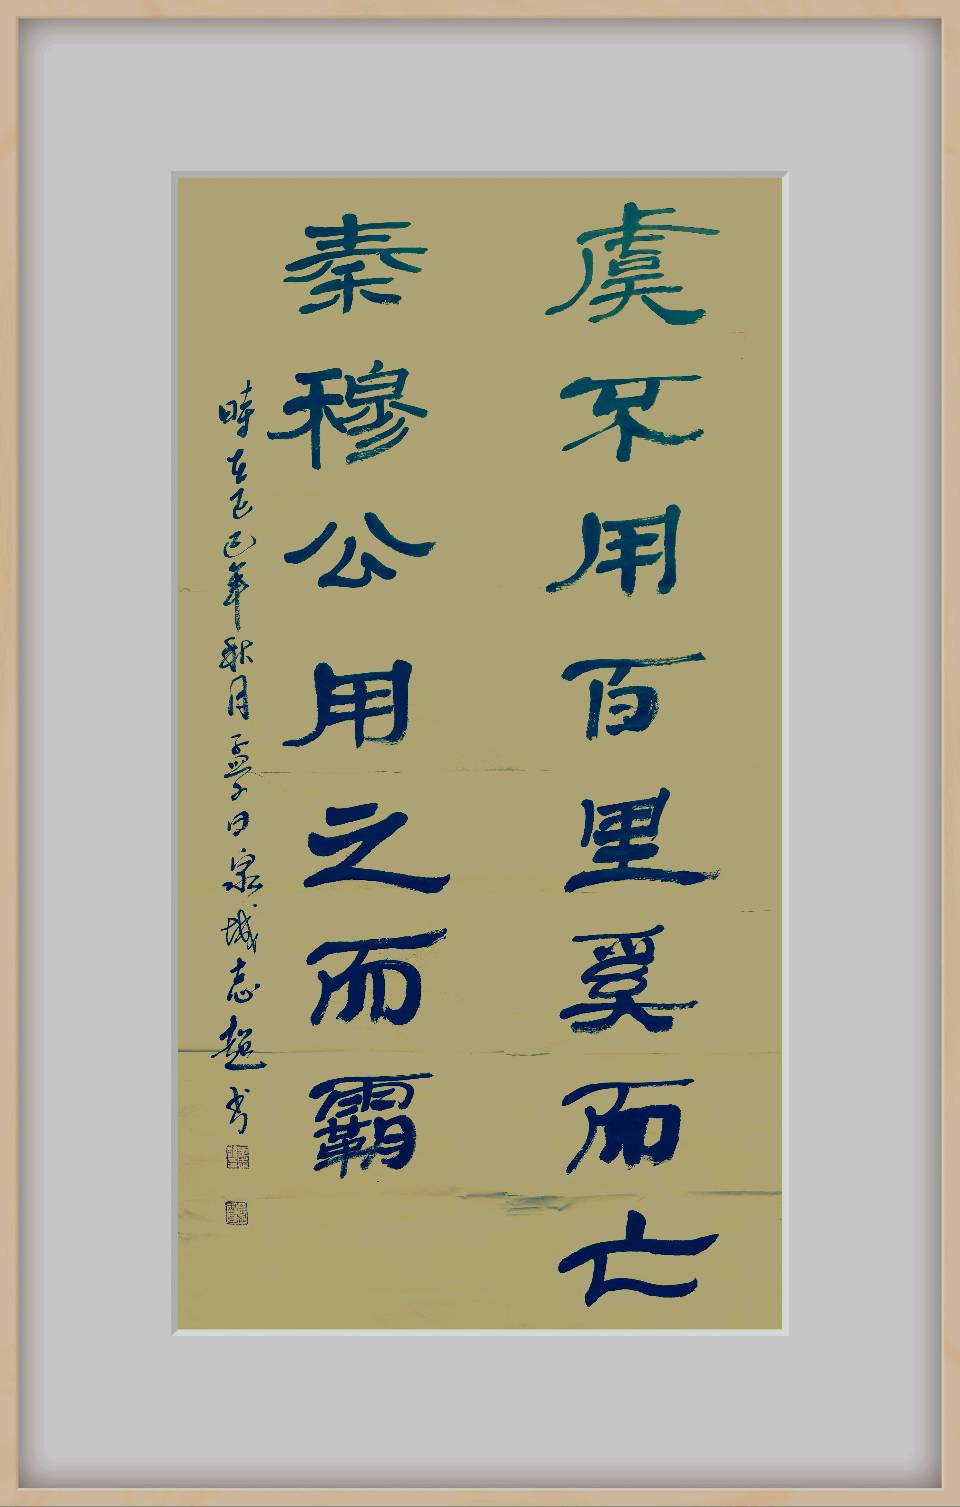 虞不用百里奚而亡
秦穆公用之而霸
時在乙巳年秋月孟学日泉城志超书